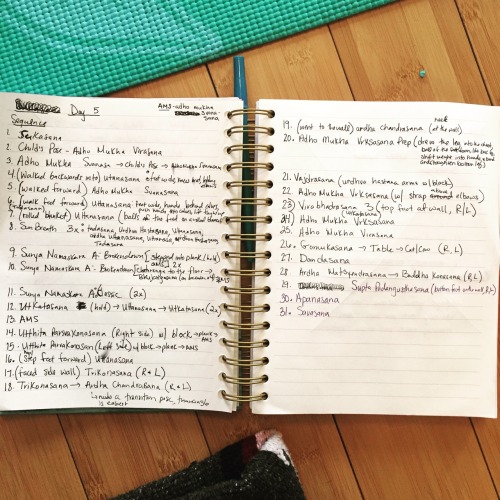 Day 5
AMS - adho mukha
svana-
sana
Sequence
1. Sukasana
2. Child's Pose - Adhu Mukha Virasana
3. Adho Mukha Svanasa → Child's Pose →
4. (Walked backwards into) Uttanasana
elbows
5. (walked forward) Adho Mukha Svanasana
6. (walk feet forward) Uttanasana
7. (rolled blanket) Uttanasana (balls of the feet on blanket)
8. Sun Breath 3x: tadasana, Urdhva Hastasana, Uttanasana,
ardha uttanasana, Uttanasana,
Tadasana
9. Surya Namaskara A - Brokendown (stepped into plank (hold)
2x
10. Surya Namaskara A - Brokendown
11. Surya Namaskara A Classic (2x)
12. Utkatasana (hold) → Uttanasana → Utkatasana (2x)
13. AMS
14. Utthita Parsvakonasana (Right side) w/ block → plank →
AMS
15. Utthita Parsvakonasana (Left side) w/ block → plank → AMS
16. (Step feet forward) Uttanasana
17. (faced side wall) Trikonasana (R & L)
18. Trikonasana → Ardha Chandrasana (R & L)
↳ make a transition pose,
is easier
19. (went to the wall) ardha chandrasana (at the wall)
20. Adho Mukha Vrksasana Prep (
21. Vajrasana (urdhva hastana arms w/ block)
above
22. Adho Mukha Vrksasana (w/ strap elbows)
23. Virabhadrasana 3 (top foot at wall, R/L)
24. Adho Mukha Vrksasana
25. Adho Mukha Virasana
26. Gomukasana → Table → Cat/Cow (R, L)
27. Dandasana
28. Ardha Matsyendrasana → Baddha Konasana (R, L)
29. Supta Padangusthasana (bottom foot
30. Apanasana
31. Savasana